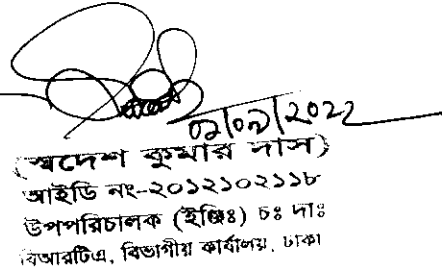 ০১/০৯/2022
(স্বদেশ কুমার দাস)
আইডি নং-২০১২১০২১১৮
উপপরিচালক (ইঞ্জিঃ) চঃ দাঃ
বিআরটিএ, বিভাগীয় কার্যালয়, ঢাকা